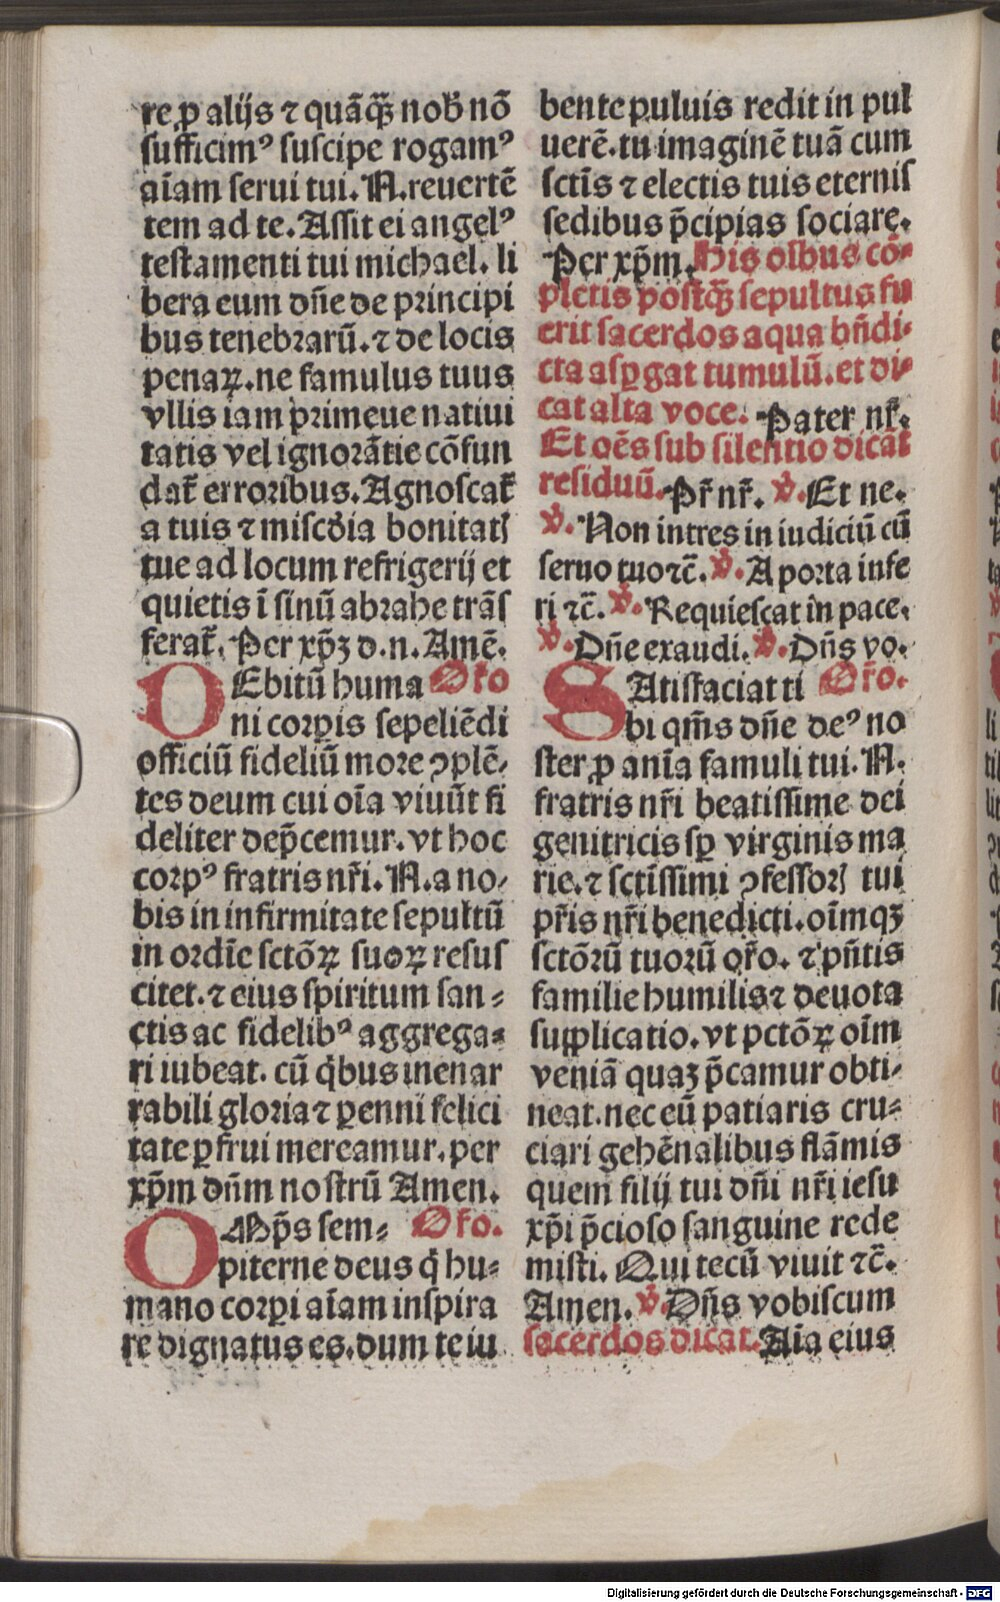 re ꝑ alijs ⁊ quãqꝫ̃ nob̃ nõ
sufficimꝰ suscipe rogamꝰ
aĩam serui tui. N. reuertẽ
tem ad te. Assit ei angelꝰ
testamenti tui michael. li
bera eum dñe de principi
bus tenebrarũ. ⁊ de locis
penaꝝ. ne famulus tuus
vllis iam primeue natiui
tatis vel ignorãtie cõfun
dat᷑ erroribus. Agnoscat᷑
a tuis ⁊ misc̃dia bonitatꝭ
tue ad locum refrigerij et
quietis ĩ sinũ abrahe trãs
ferat᷑. Per xp̃ꝫ d. n. Amẽ.
DEbitũ huma Or̃o
ni corꝑis sepeliẽdi
officiũ fideliũ more ꝯplẽ-
tes deum cui oĩa viuũt fi
deliter dep̃cemur. vt hoc
corpꝰ fratris nr̃i. N. a no-
bis in infirmitate sepultũ
in ordĩe sctõꝝ suoꝝ resus
citet. ⁊ eius spiritum san-
ctis ac fidelibꝰ aggrega-
ri iubeat. cũ q̇bus inenar
rabili gloria ⁊ ꝑenni felici
tate ꝑfrui mereamur. per
xp̃m dñm nostrũ Amen.
OMp̃s sem- Or̃o.
piterne deus q̇ hu-
mano corꝑi aĩam inspira
re dignatus es. dum te iu
bente puluis redit in pul
uerẽ. tu imaginẽ tuã cum
sctĩs ⁊ electis tuis eternis
sedibus p̃cipias sociare.
Per xp̃m. His oĩbus cõ-
pletis postqꝫ̃ sepultus fu
erit sacerdos aqua bñdi-
cta asꝑgat tumulũ. et di-
cat alta voce. Pater nr̃.
Et oẽs sub silentio dicãt
residuũ. Pr̃ nr̃. ℣. Et ne.
℣. Non intres in iudiciũ cũ
seruo tuo ⁊c̃. ℣. A porta infe
ri ⁊c̃. ℣. Requiescat in pace.
℣. Dñe exaudi. ℣. Dñs vo.
SAtisfaciat ti Or̃o.
bi qm̃s dñe deꝰ no
ster ꝑ anĩa famuli tui. N.
fratris nr̃i beatissime dei
genitricis sꝑ virginis ma
rie. ⁊ sctĩssimi ꝯfessorꝭ tui
pr̃is nr̃i benedicti. oĩmqꝫ
sctõrũ tuorũ or̃o. ⁊ pñtis
familie humilis ⁊ deuota
supplicatio. vt pctõꝝ oĩm
veniã quaꝫ p̃camur obti-
neat. nec eũ patiaris cru-
ciari gehẽnalibus flãmis
quem filij tui dñi nr̃i iesu
xp̃i p̃cioso sanguine rede
misti. Qui tecũ viuit ⁊c̃.
Amen. ℣. Dñs vobiscum
sacerdos dicat. Aĩa eius
Digitalisierung gefördert durch die Deutsche Forschungsgemeinschaft - DFG